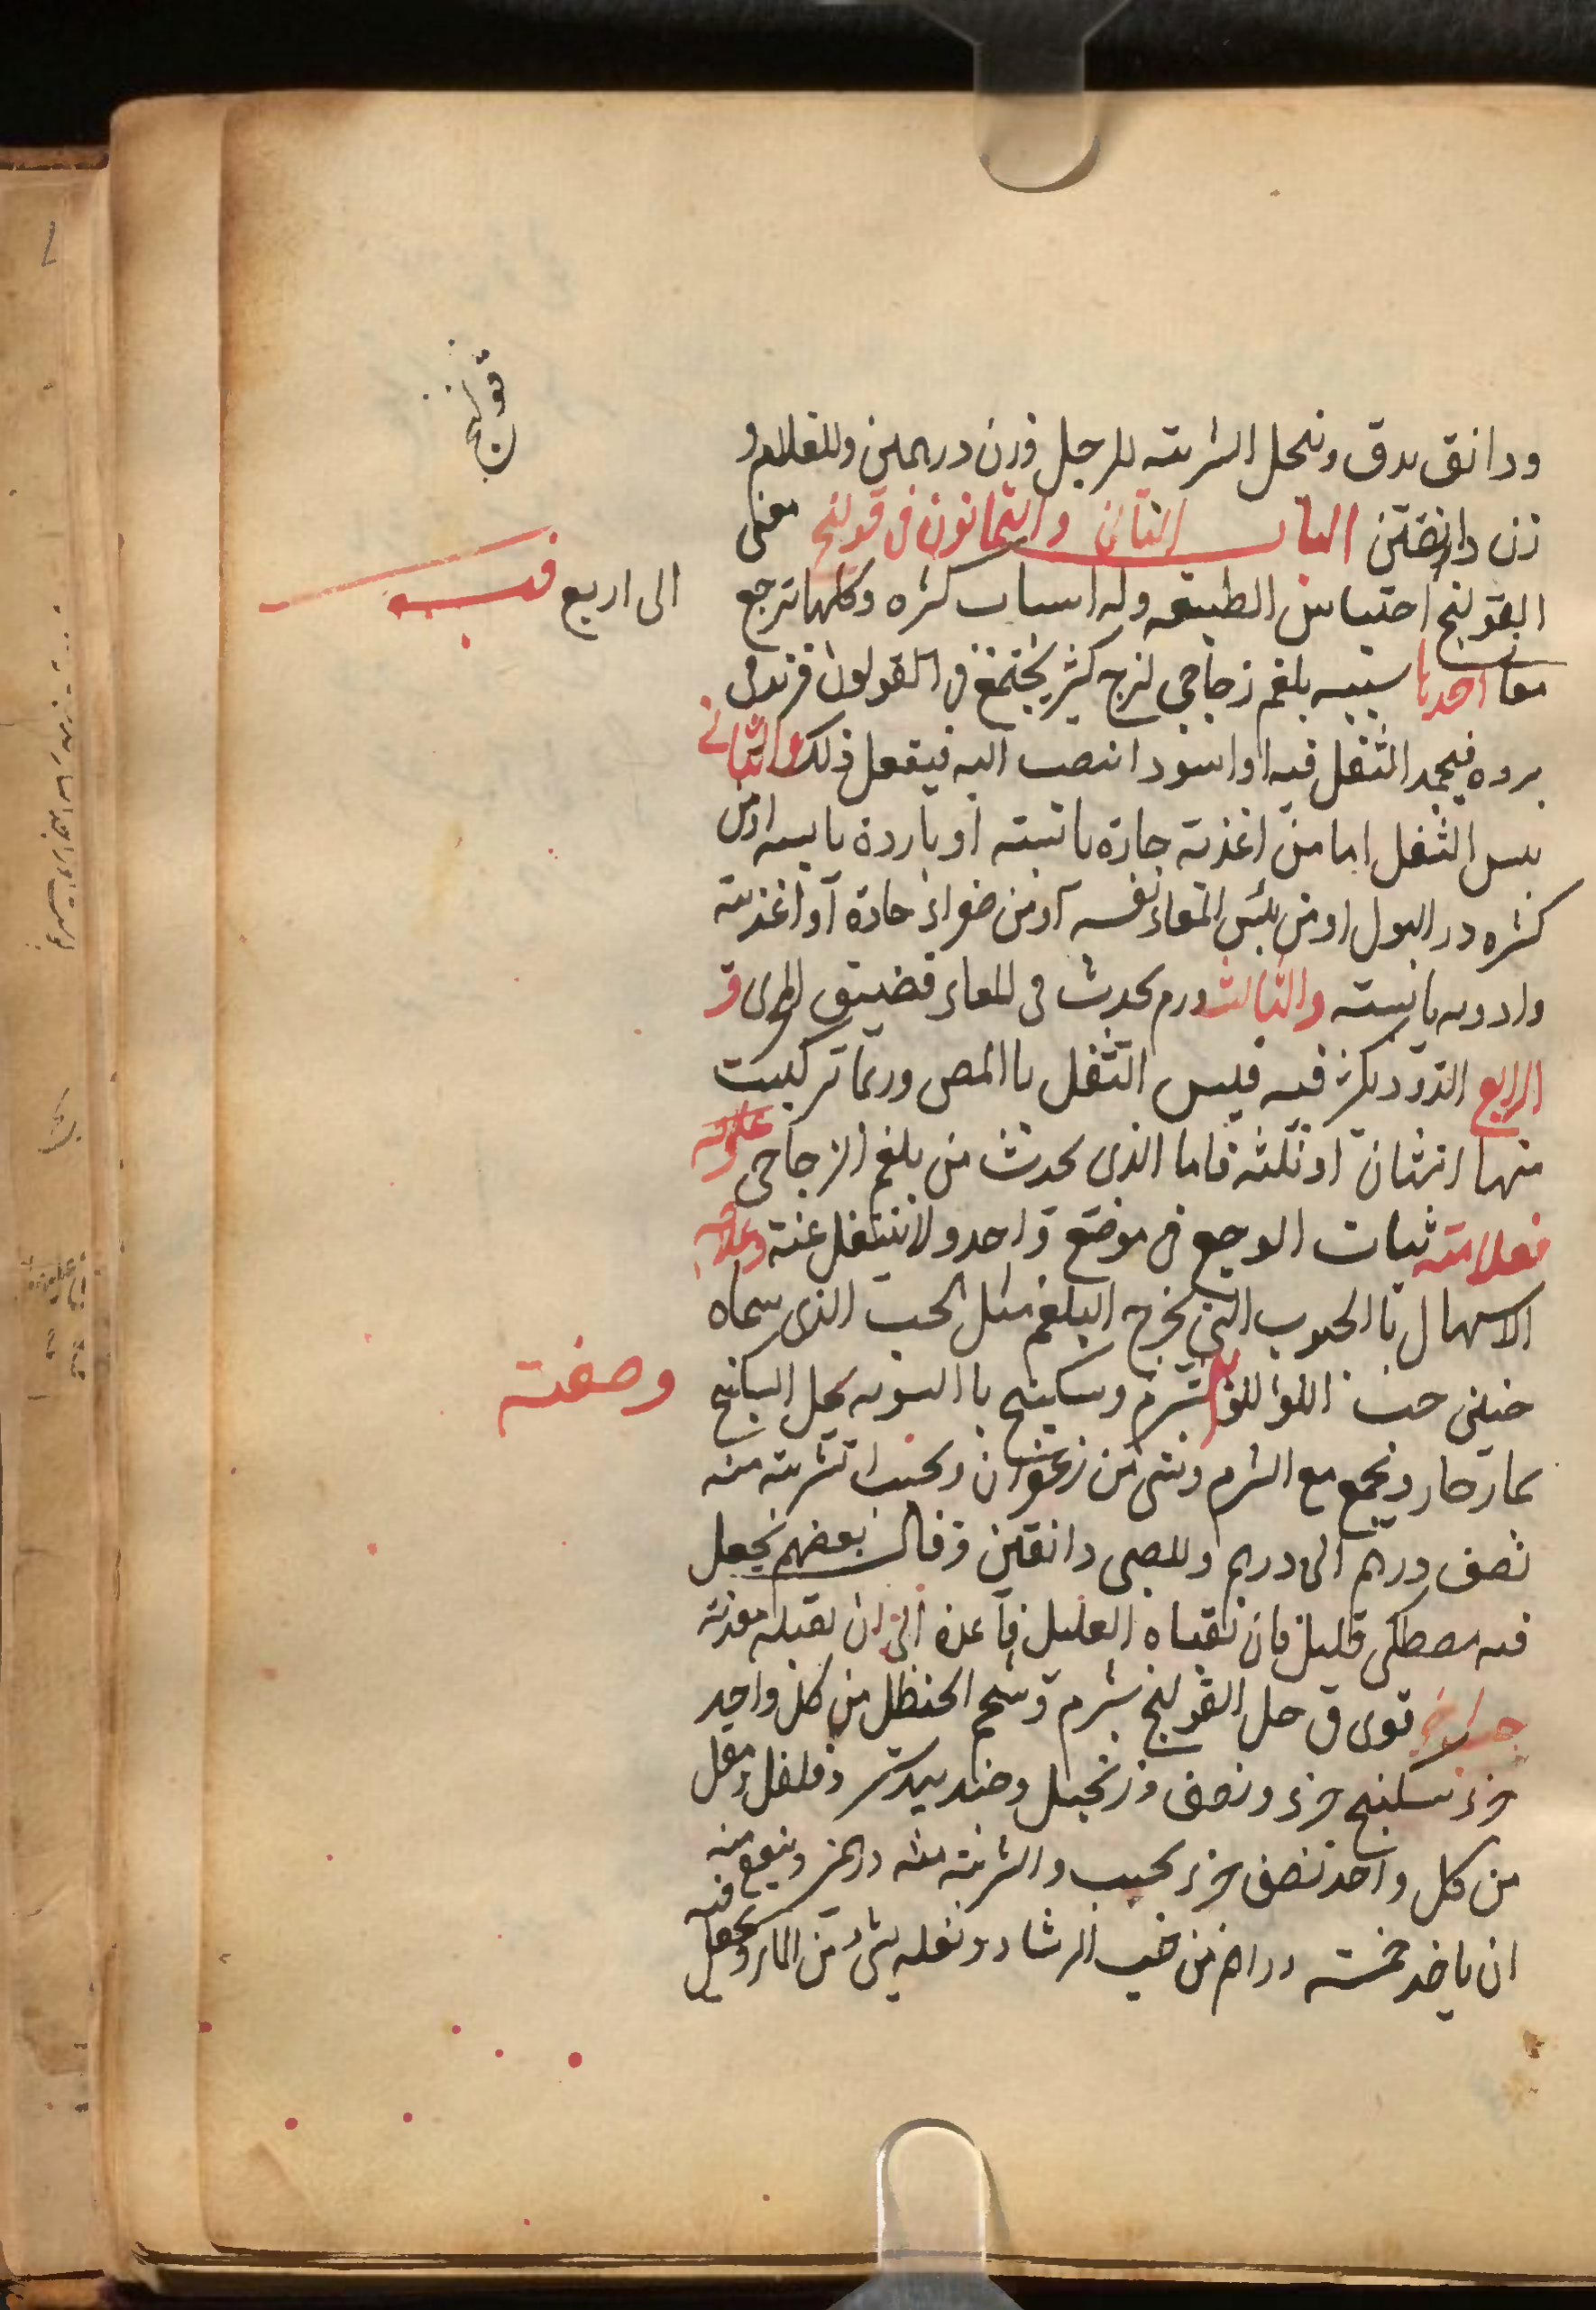 قولنج
ودانق يدق وينخل الشربته للرجل وزن درهمين وللغلام و
زن دانقين الباب الثاني والثمانون في قولنج معنى
القولنج احتباس الطبيعه وله اسباب كثره وكلها ترجع الى اربع
معا احديا سببه بلغم زجاجي لزج كثير يجتمع في القولون فزيد في
برده فيجمد الثفل فيه او اسودا تنصب اليه فيفعل ذلك والثاني
يبس الثفل اما من اغذية حارة يابسته او باردة يابسه او من
كثره در البول او من يبس المعاء نفسه او من ضواد حادة او اغذيته
وادويه يابسته والثالث ورم يحدث في المعاء فضيق المجرى و
الرابع الدود يكثر فيه فيبس الثفل باالمص وربما تركبت
منها اثنان او ثلثه فاما الذي يحدث من بلغم الزجاجي
فعلامته ثبات الوجع في موضع واحد ولا ينتقل عنته وعلاجه
الاسهال باالحبوب التي تخرج البلغم مثل الحب الذي سماه
حنين حب اللؤاللؤ شبرم وسكبينج باالسويه يحل السكبينج وصفته
بماء حار ويجمع مع الشبرم وشي من زعفران ويحبب الشربته منه
نصف درهم الى درهم وللصبي دانقين وقال بعضهم يجعل
فيه مصطكى قليل فان تقياه العليل فاعده الى ان يقبله معدته
قوى في حل القولنج شبرم وشحم الحنظل من كل واحد
جزء سكبينج جزء ونصف وزنجبيل وجندبيدستر وفلفل ومقل
من كل واحد نصف جزء يحبب والشربته منه درهم وينفع منه
ان ياخد خمسته دراهم من حب الرشاد ونغليه بشي من الماء ويجعل فيه